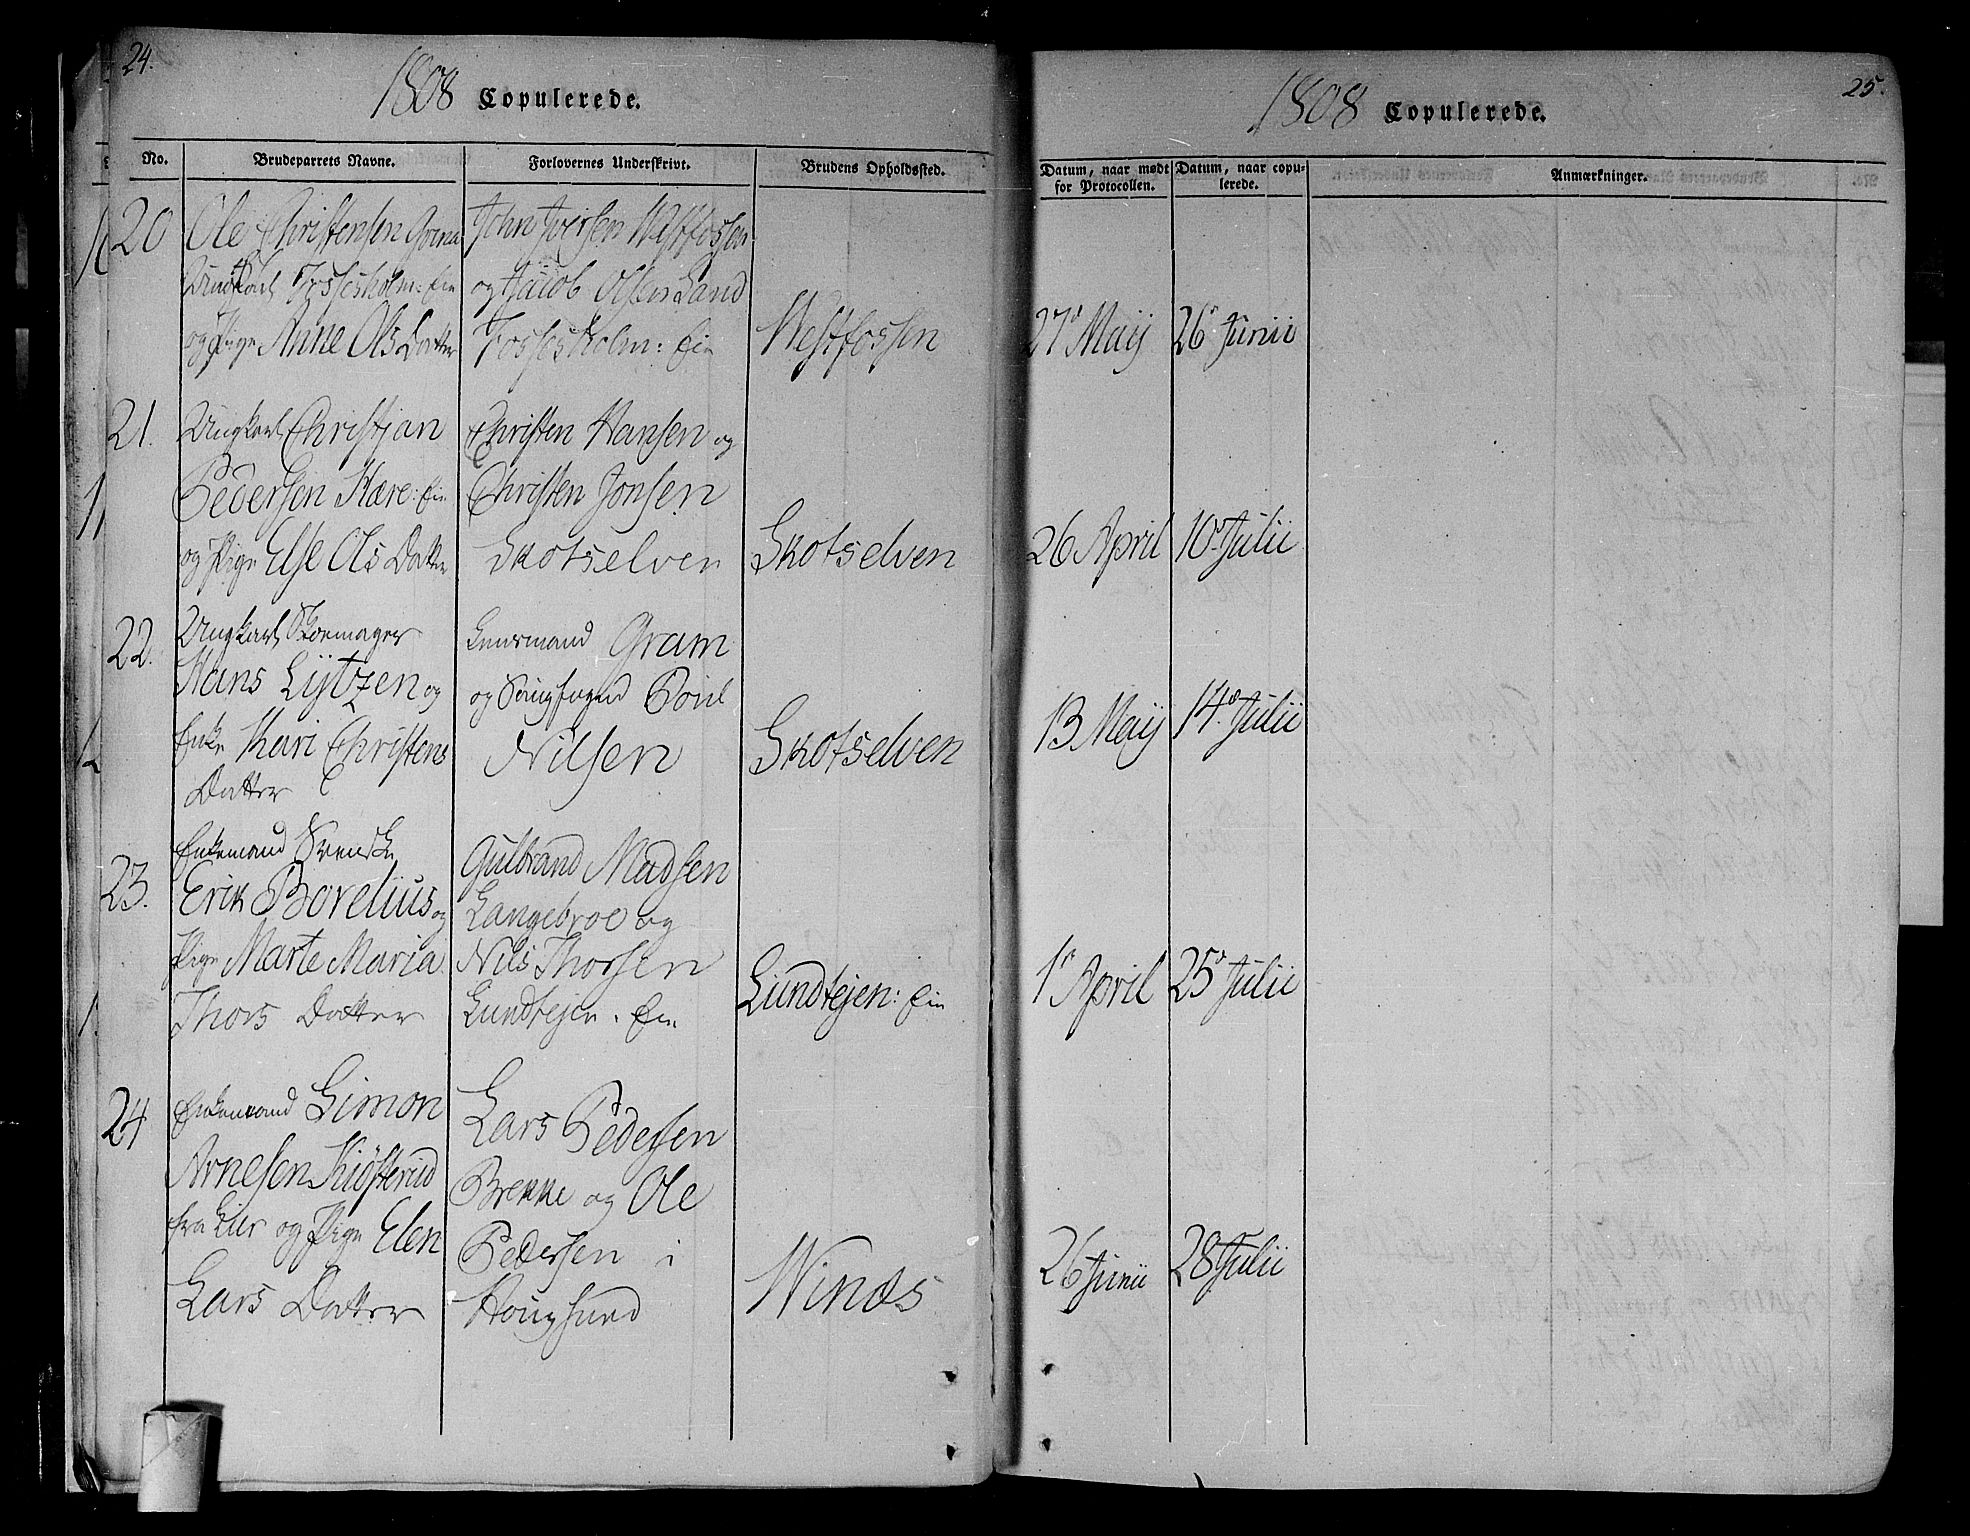 24.
1808 Copulerede.
No. Brudeparrets Navne. Forlovernes Underskrivt. Brudens Opholdssted.
20 Ole Christensen
Ungkarl Fossesholm: Eie
og Pige Anne Ols Datter
John Iversen Westfossen
og Jacob Olsen Sand
Fossesholm: Eie
Westfossen
21. Ungkarl Christjan
Pedersen Kære: Eie
og Pige Else Ols Datter
Christen Hansen og
Christen Jonsen
Skotselven
Skotselven
22. Ungkarl Skoemager
Hans Lÿtzen og
Enke Kari Christens
Datter
Lensmand Gram
og Poul
Nilsen
Skotselven
23. Enkemand Svensk
Erik Borelius og
Pige Marte Maria
Thors Datter
Gulbrand Madsen
Langebroe og
Nils Thorsen
Lundtejen: Eie
Lundtejen: Eie
24 Enkemand Simon
Arnesen Kiösterud
fra Lier og Pige Elen
Lars Datter
Lars Pedersen
Brekke og Ole
Pedersen i
Hougsund
Winæs
25.
1808 Copulerede.
Datum, naar mødt for Protocollen. Datum, naar copulerede. Anmærkninger.
27 Maij 26 Junii
26 April 10 Julii
13 Maij 14 Julii
1 April 25 Julii
26 Junii 28 Julii